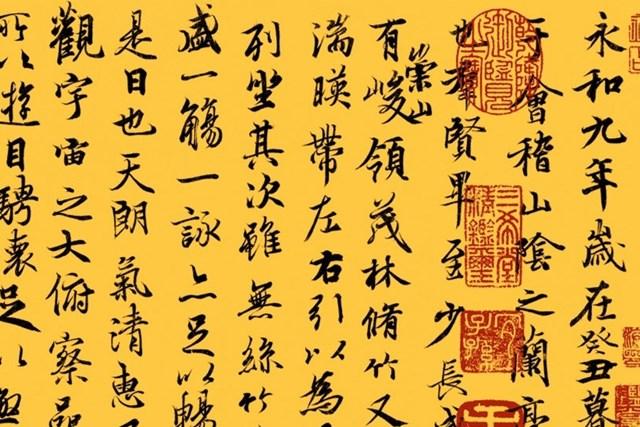 永和九年歲在癸丑暮
于會稽山陰之蘭亭
也羣賢畢至少長咸
有崇山峻領茂林脩竹又
湍暎帶左右引以為
列坐其次雖無絲竹
盛一觴一詠亦足以暢
是日也天朗氣清惠
觀宇宙之大俯察品
所以遊目騁懷足以
三希堂精鑑璽
宜子孫